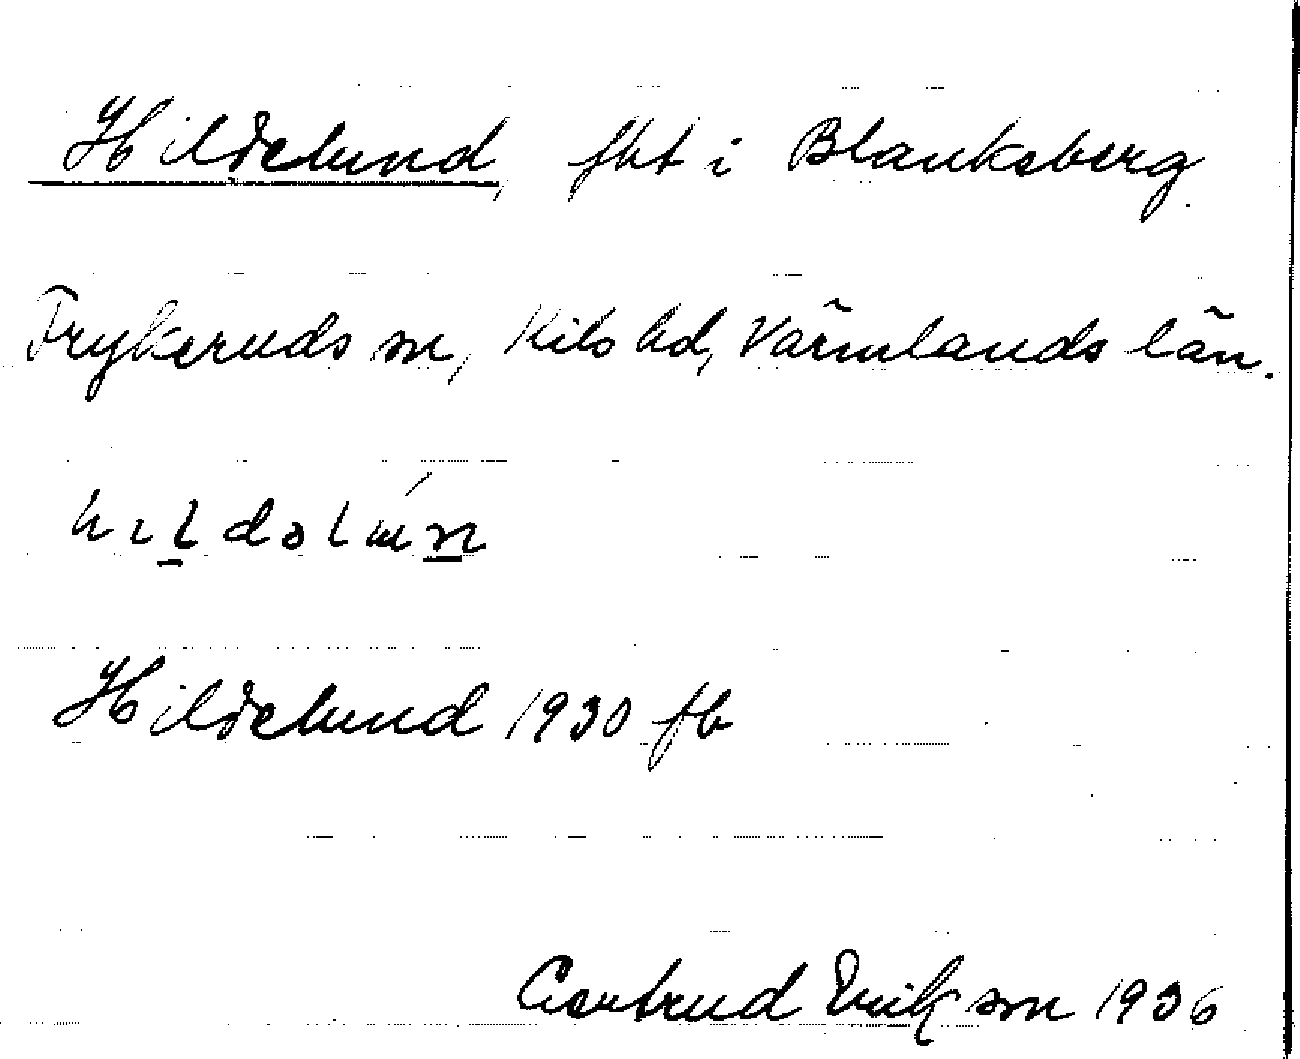 Hildelund, fht i Blanksberg
Frykeruds sn, Kils hd, Värmlands län.
Hildelund 1930 fb
Gertrud Erikson 1936